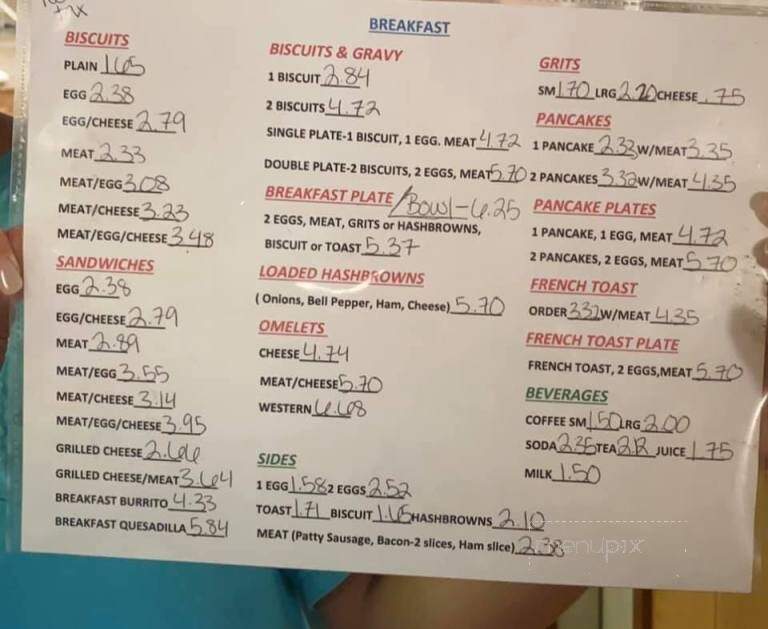 BREAKFAST
BISCUITS
PLAIN 1.65
EGG 2.38
EGG/CHEESE 2.79
MEAT 2.33
MEAT/EGG 3.08
MEAT/CHEESE 3.23
MEAT/EGG/CHEESE 3.48
SANDWICHES
EGG 2.38
EGG/CHEESE 2.79
MEAT 2.89
MEAT/EGG 3.55
MEAT/CHEESE 3.14
MEAT/EGG/CHEESE 3.95
GRILLED CHEESE 2.66
GRILLED CHEESE/MEAT 3.64
BREAKFAST BURRITO 4.33
BREAKFAST QUESADILLA 5.84
BISCUITS & GRAVY
1 BISCUIT 2.84
2 BISCUITS 4.72
SINGLE PLATE-1 BISCUIT, 1 EGG. MEAT 4.72
DOUBLE PLATE-2 BISCUITS, 2 EGGS, MEAT 5.70
BREAKFAST PLATE /Bowl-6.25
2 EGGS, MEAT, GRITS or HASHBROWNS,
BISCUIT or TOAST 5.37
LOADED HASHBROWNS
( Onions, Bell Pepper, Ham, Cheese) 5.70
OMELETS
CHEESE 4.74
MEAT/CHEESE 5.70
WESTERN 6.68
SIDES
1 EGG 1.58 2 EGGS 2.52
TOAST 1.71 BISCUIT 1.65 HASHBROWNS 2.10
MEAT (Patty Sausage, Bacon-2 slices, Ham slice) 2.38
GRITS
SM 1.70 LRG 2.20 CHEESE .75
PANCAKES
1 PANCAKE 2.33 W/MEAT 3.35
2 PANCAKES 3.32 W/MEAT 4.35
PANCAKE PLATES
1 PANCAKE, 1 EGG, MEAT 4.72
2 PANCAKES, 2 EGGS, MEAT 5.70
FRENCH TOAST
ORDER 3.32 W/MEAT 4.35
FRENCH TOAST PLATE
FRENCH TOAST, 2 EGGS, MEAT 5.70
BEVERAGES
COFFEE SM 1.50 LRG 2.00
SODA 2.35 TEA 2.12 JUICE 1.75
MILK 1.50
menupix